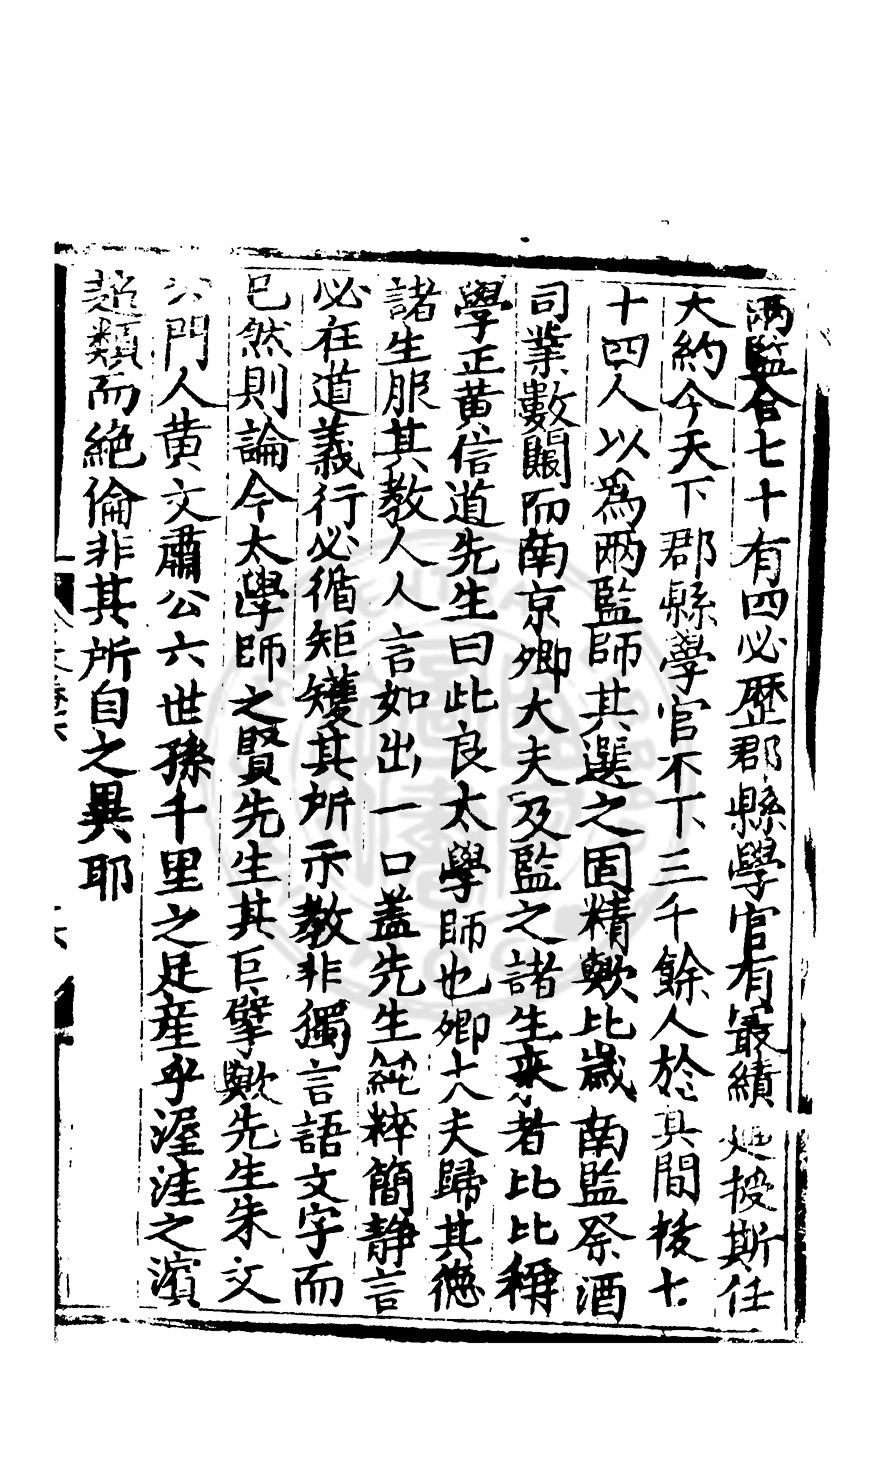 兩監官七十有四必歷郡縣學官有最績廼授斯任
大約今天下郡縣學官不下三千餘人於其間棱七
十四人以為兩監師其選之固精歟比歲南監祭酒
司業數闕而南京卿大夫及監之諸生来者比比稱
學正黄信道先生曰此良太學師也卿大夫歸其德
諸生服其教人人言如出一口蓋先生純粹簡静言
必在道義行必循矩矱其所示教非獨言語文字而
已然則論今太學師之賢先生其巨擘歟先生朱文
公門人黄文肅公六世孫千里之足産乎渥洼之濱
超類而絶倫非其所自之異耶